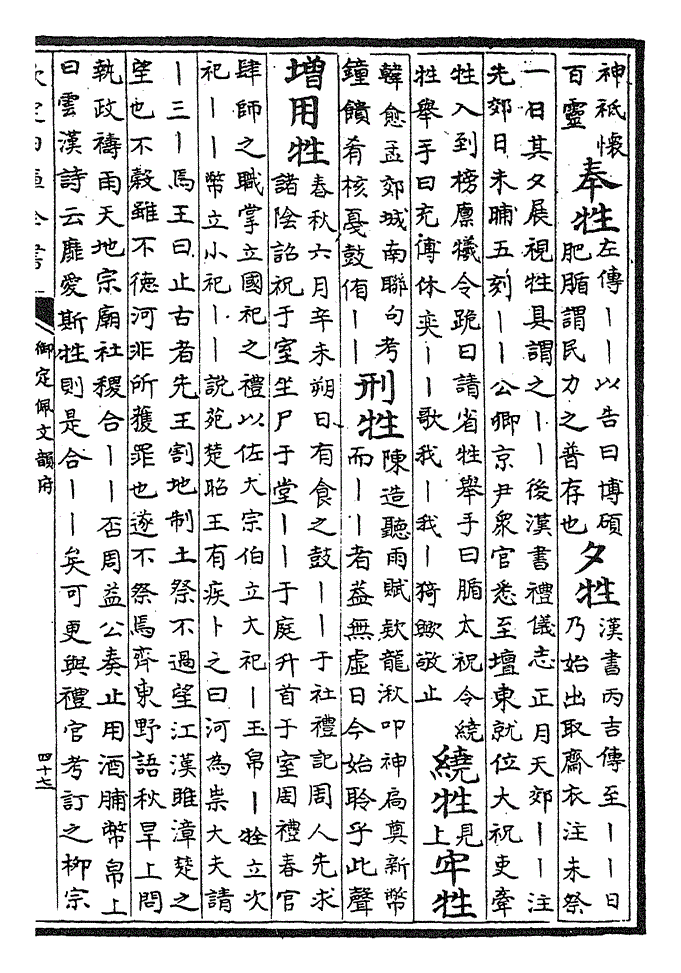 神祗懷
百靈
奉牲
左傳——以告曰博碩
肥腯謂民力之普存也
夕牲
漢書丙吉傳至——日
乃始出取齋衣注未祭
一日其夕展視牲具謂之——後漢書禮儀志正月天郊——注
先郊日未晡五刻——公卿京尹衆官悉至壇東就位大祝吏牽
牲入到榜廪犧令跪曰請省牲舉手曰腯太祝令繞
牲舉手曰充傅休奕——歌我—我—猗歟敬止
繞牲
見
上
牢牲
韓愈孟郊城南聯句考
鐘饋肴核戛鼓侑——
刑牲
陳造聽雨賦欵龍湫叩神扃奠新幣
而——者益無虛日今始聆乎此聲
増用牲
春秋六月辛未朔日有食之鼓——于社禮記周人先求
諸陰詔祝于室坐尸于堂——于庭升首于室周禮春官
肆師之職掌立國祀之禮以佐大宗伯立大祀—玉帛—牷立次
祀——幣立小祀——說苑楚昭王有疾卜之曰河為祟大夫請
—三—馬王曰止古者先王割地制土祭不過望江漢睢漳楚之
望也不榖雖不德河非所獲罪也遂不祭焉齊東野語秋旱上問
執政禱雨天地宗廟社稷合——否周益公奏止用酒脯幣帛上
曰雲漢詩云靡愛斯牲則是合——矣可更與禮官考訂之柳宗
欽定四庫全書
御定佩文韻府
四十七